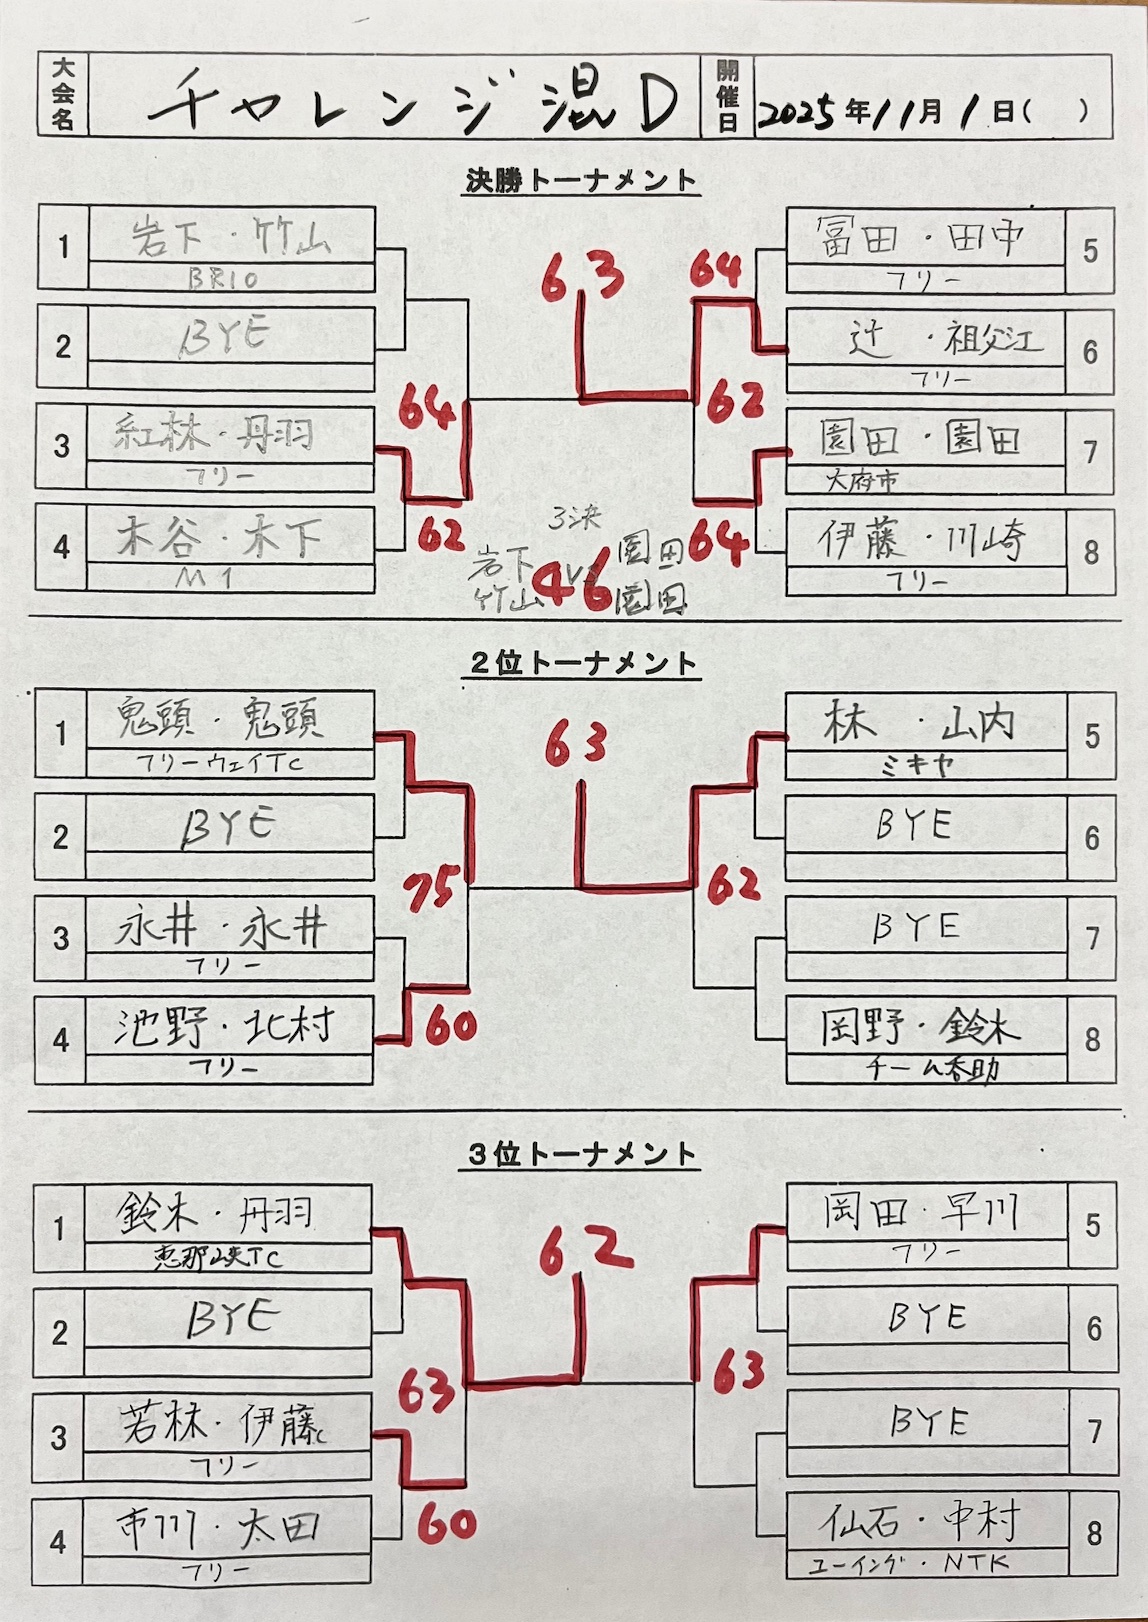 大会名 チャレンジ混D 開催日 2025年11月1日( )
決勝トーナメント
1 岩下・竹山
BRIO
2 BYE
3 紅林・丹羽
フリー
4 木谷・木下
M1
64
62
63
64
62
64
5 冨田・田中
フリー
6 辻・祖父江
フリー
7 園田・園田
大府市
8 伊藤・川崎
フリー
3決
岩下 竹山 VS 園田 園田
46
2位トーナメント
1 鬼頭・鬼頭
フリーウェイTC
2 BYE
3 永井・永井
フリー
4 池野・北村
フリー
75
60
63
62
5 林・山内
ミキヤ
6 BYE
7 BYE
8 岡野・鈴木
チーム秀助
3位トーナメント
1 鈴木・丹羽
恵那峡TC
2 BYE
3 若林・伊藤
フリー
4 市川・太田
フリー
63
60
62
63
5 岡田・早川
フリー
6 BYE
7 BYE
8 仙石・中村
ユーイング・NTK